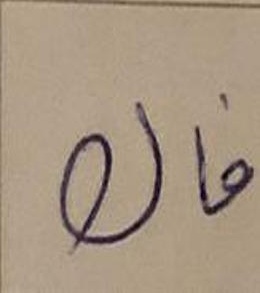 فال